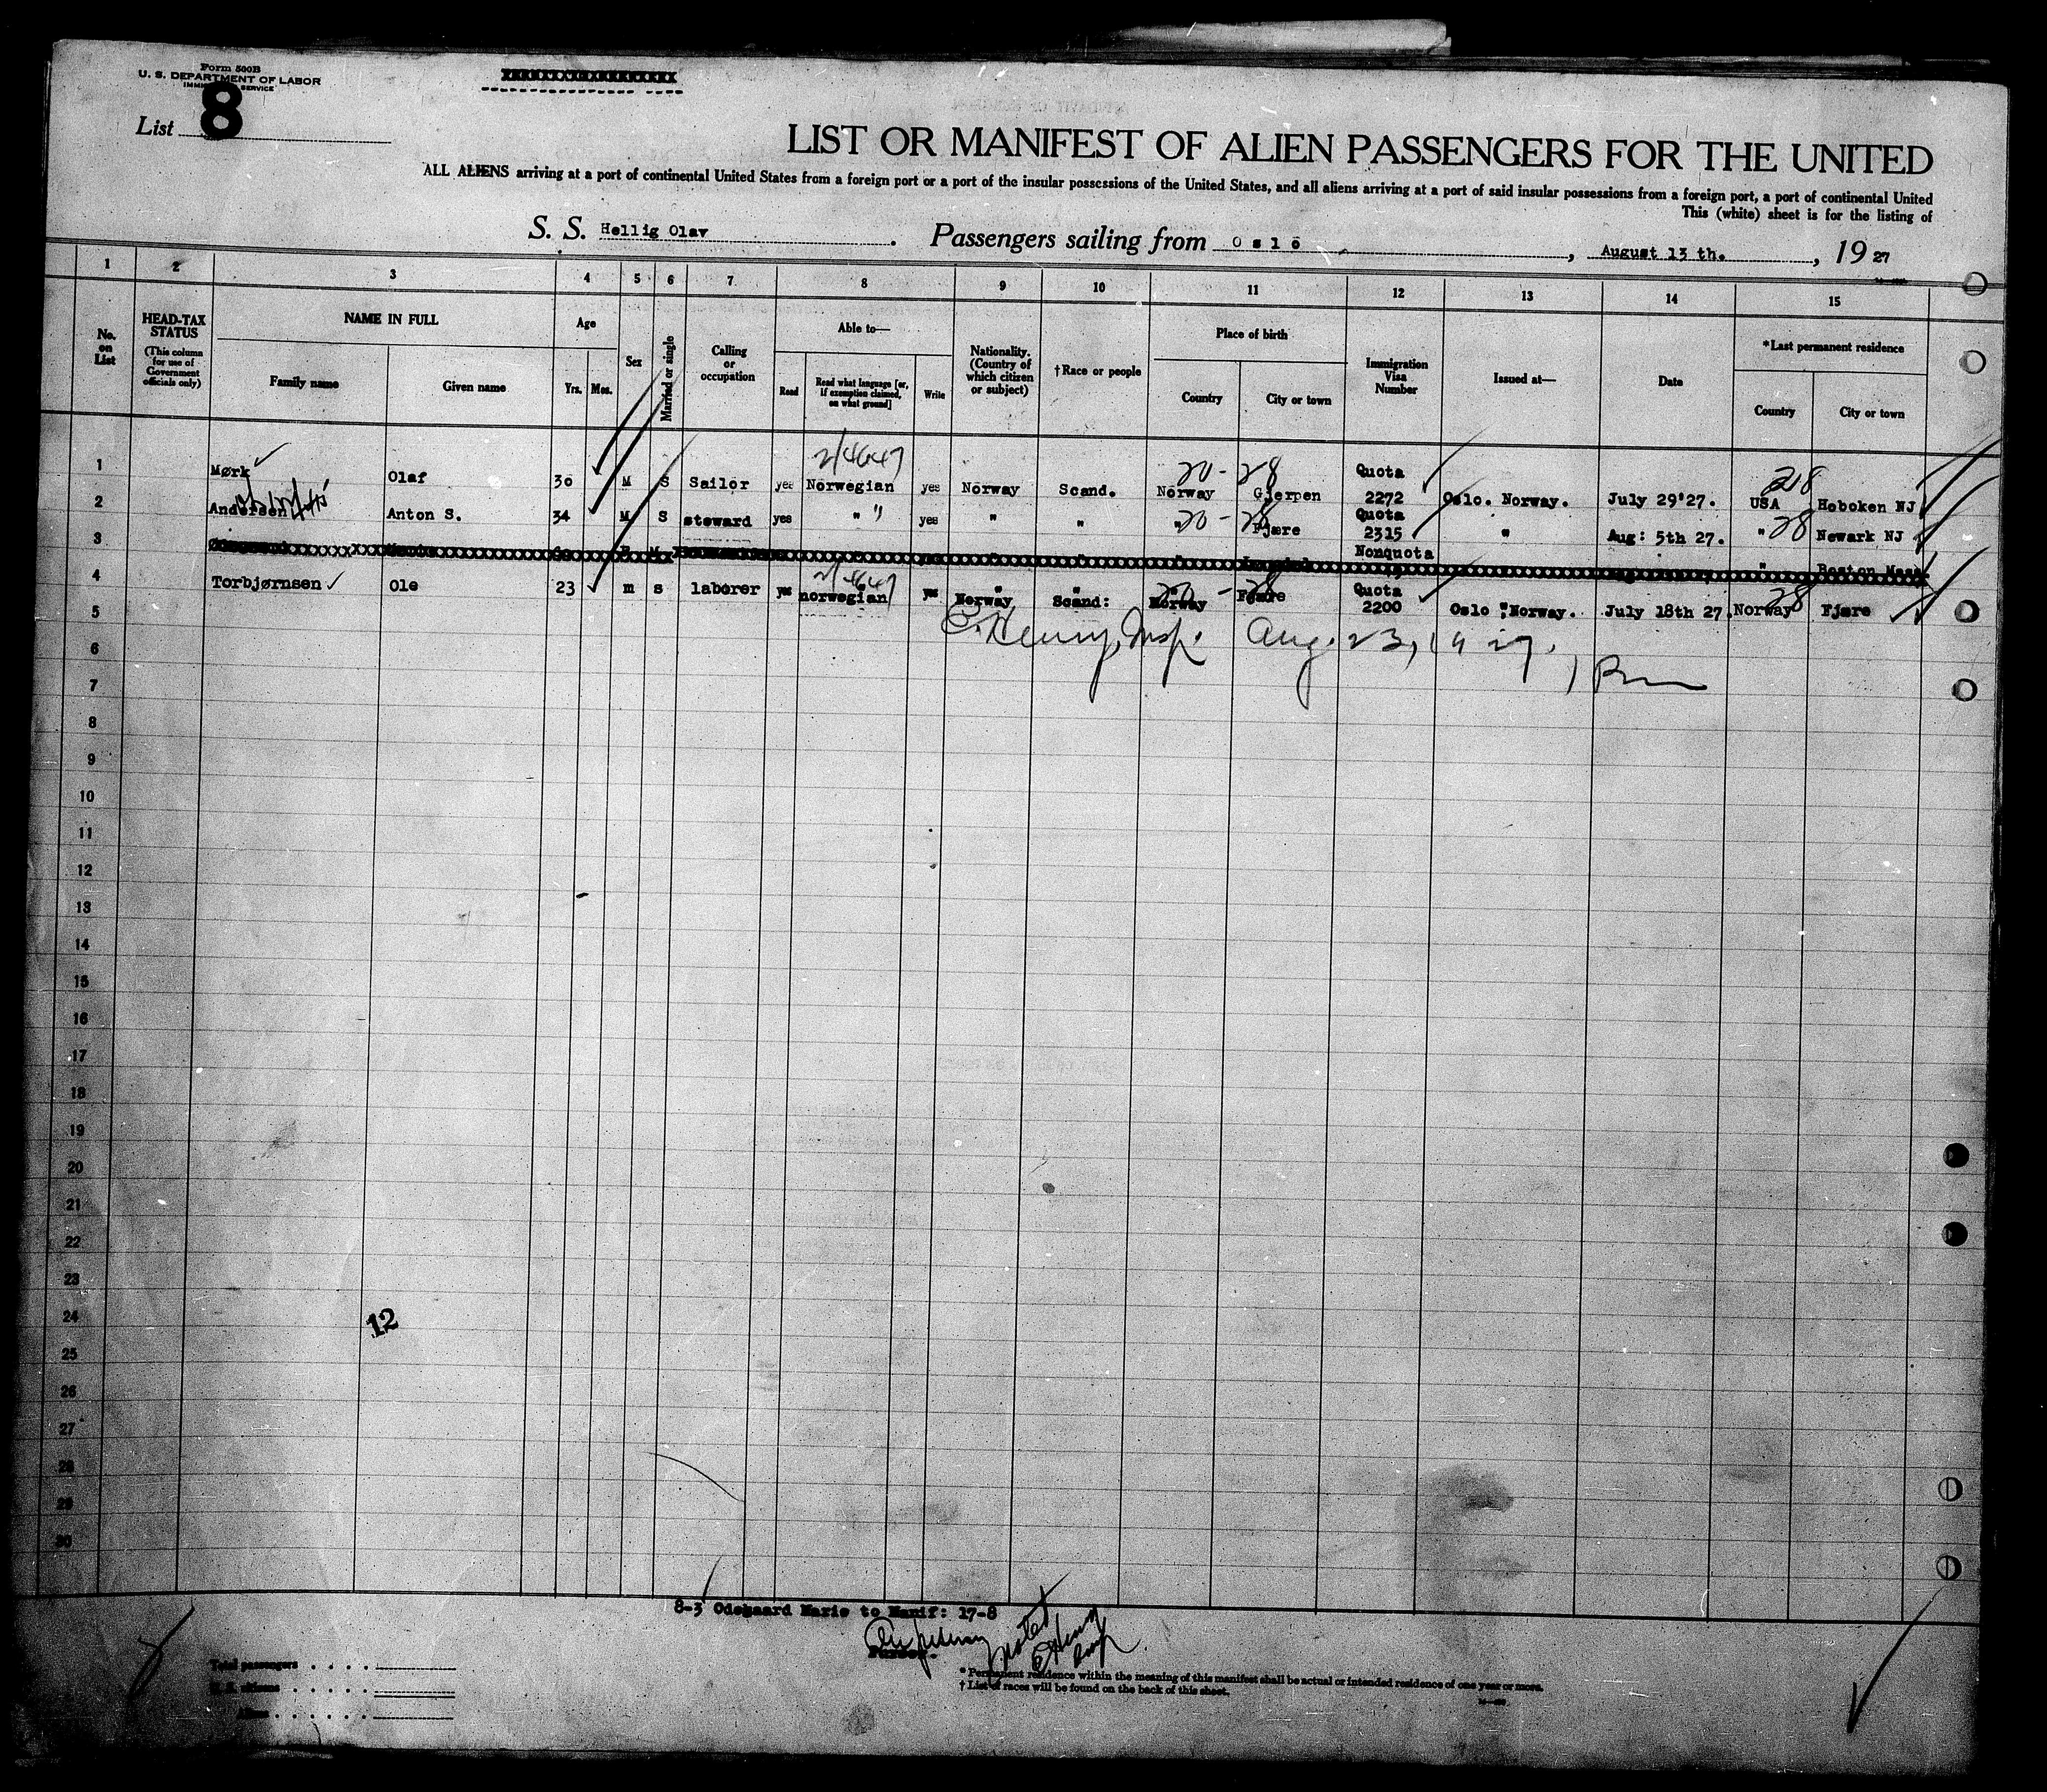 Form 500B
U. S. DEPARTMENT OF LABOR
IMMIGRATION SERVICE
XXXXXXXXXXXXXXXXXXX
List 8
LIST OR MANIFEST OF ALIEN PASSENGERS FOR THE UNITED
ALL ALIENS arriving at a port of continental United States from a foreign port or a port of the insular possessions of the United States, and all aliens arriving at a port of said insular possessions from a foreign port, a port of continental United
This (white) sheet is for the listing of
S. S. Hellig Olav . Passengers sailing from Oslo , August 13 th. , 19 27
1 2 3 4 5 6 7 8 9 10 11 12 13 14 15
No. on List
HEAD-TAX STATUS (This column for use of Government officials only)
NAME IN FULL
Family name Given name
Age
Yrs. Mos.
Sex
Married or single
Calling or occupation
Able to—
Read Read what language [or, if exemption claimed, on what ground] Write
Nationality. (Country of which citizen or subject)
†Race or people
Place of birth
Country City or town
Immigration Visa Number
Issued at—
Date
*Last permanent residence
Country City or town
2/4647 20 - 28 218
1 Mørk Olaf 30 M S Sailor yes Norwegian yes Norway Scand. Norway Gjerpen Quota 2272 Oslo. Norway. July 29'27. USA Hoboken NJ
2 Andersen Anton S. 34 M S steward yes " " yes " " " 20 - 28 Fjære Quota 2315 " Aug: 5th 27. " 28 Newark NJ
3 Nonquota " Boston Mass.
4 Torbjørnsen Ole 23 m s laborer yes 2/4647 norwegian yes Norway Scand: Norway 20 - 28 Fjære Quota 2200 Oslo Norway. July 18th 27. Norway 28 Fjære
5
C. Henry, Insp. Aug. 23, 1927.
6
7
8
9
10
11
12
13
14
15
16
17
18
19
20
21
22
23
24
12
25
26
27
28
29
30
8-3 Odegaard Marie to Manif: 17-8
Noted
Purser.
Total passengers . . . .
U. S. citizens . . . . .
Aliens . . . . . .
* Permanent residence within the meaning of this manifest shall be actual or intended residence of one year or more.
† List of races will be found on the back of this sheet.